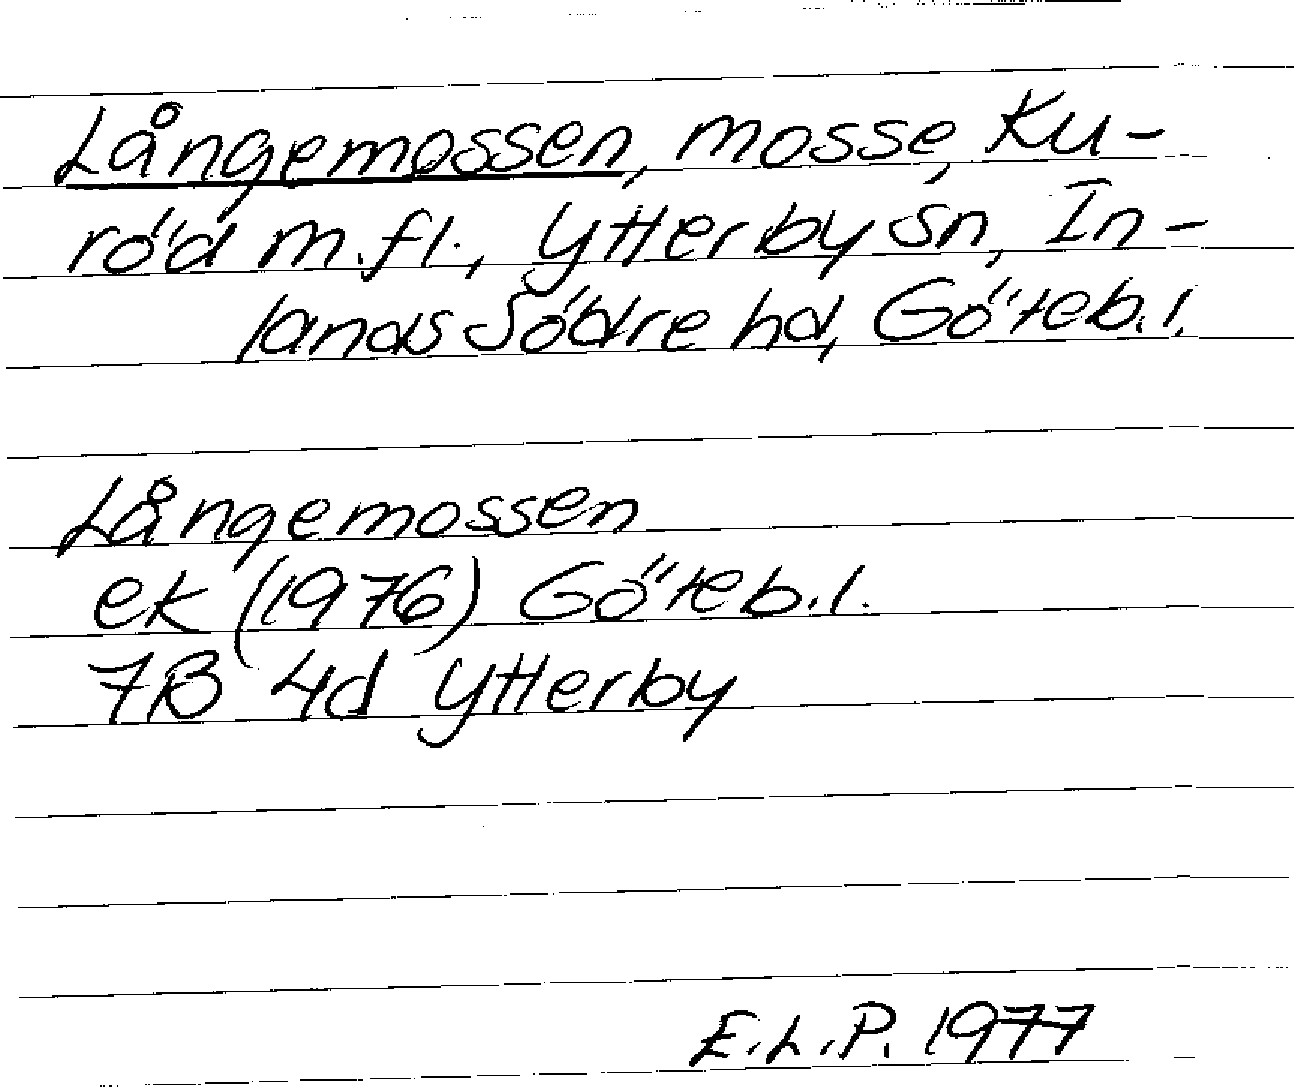 Långemossen, mosse, Ku-
röd m.fl., Ytterby sn, In-
lands Södre hd, Göteb.l.
Långemossen
ek (1976) Göteb.l.
7B 4d Ytterby
E.L.P. 1977